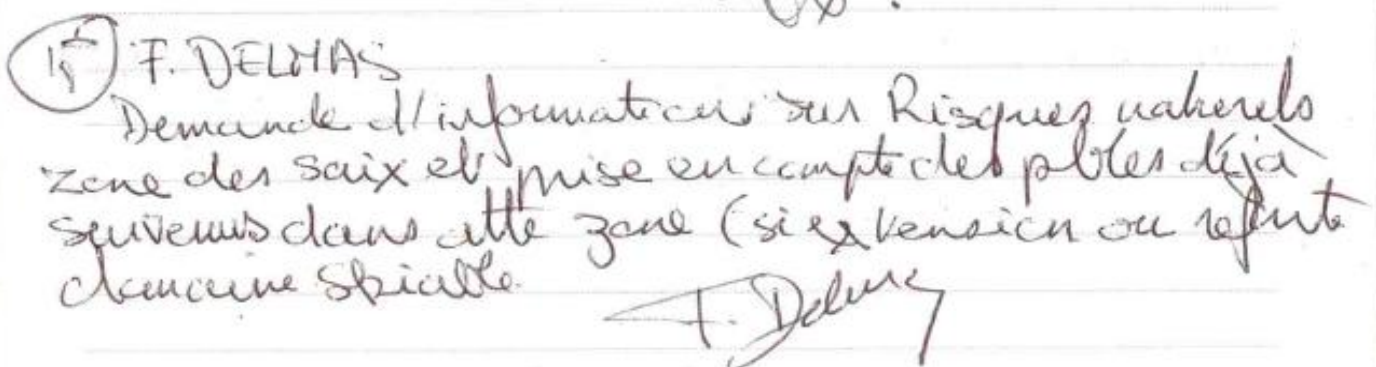 F. DELMAS
Demande d'information sur Risques naturels
zone des saix et prise en compte des pbles déjà
survenus dans cette zone (si extension ou refonte
domaine skiable.
F. Delmas